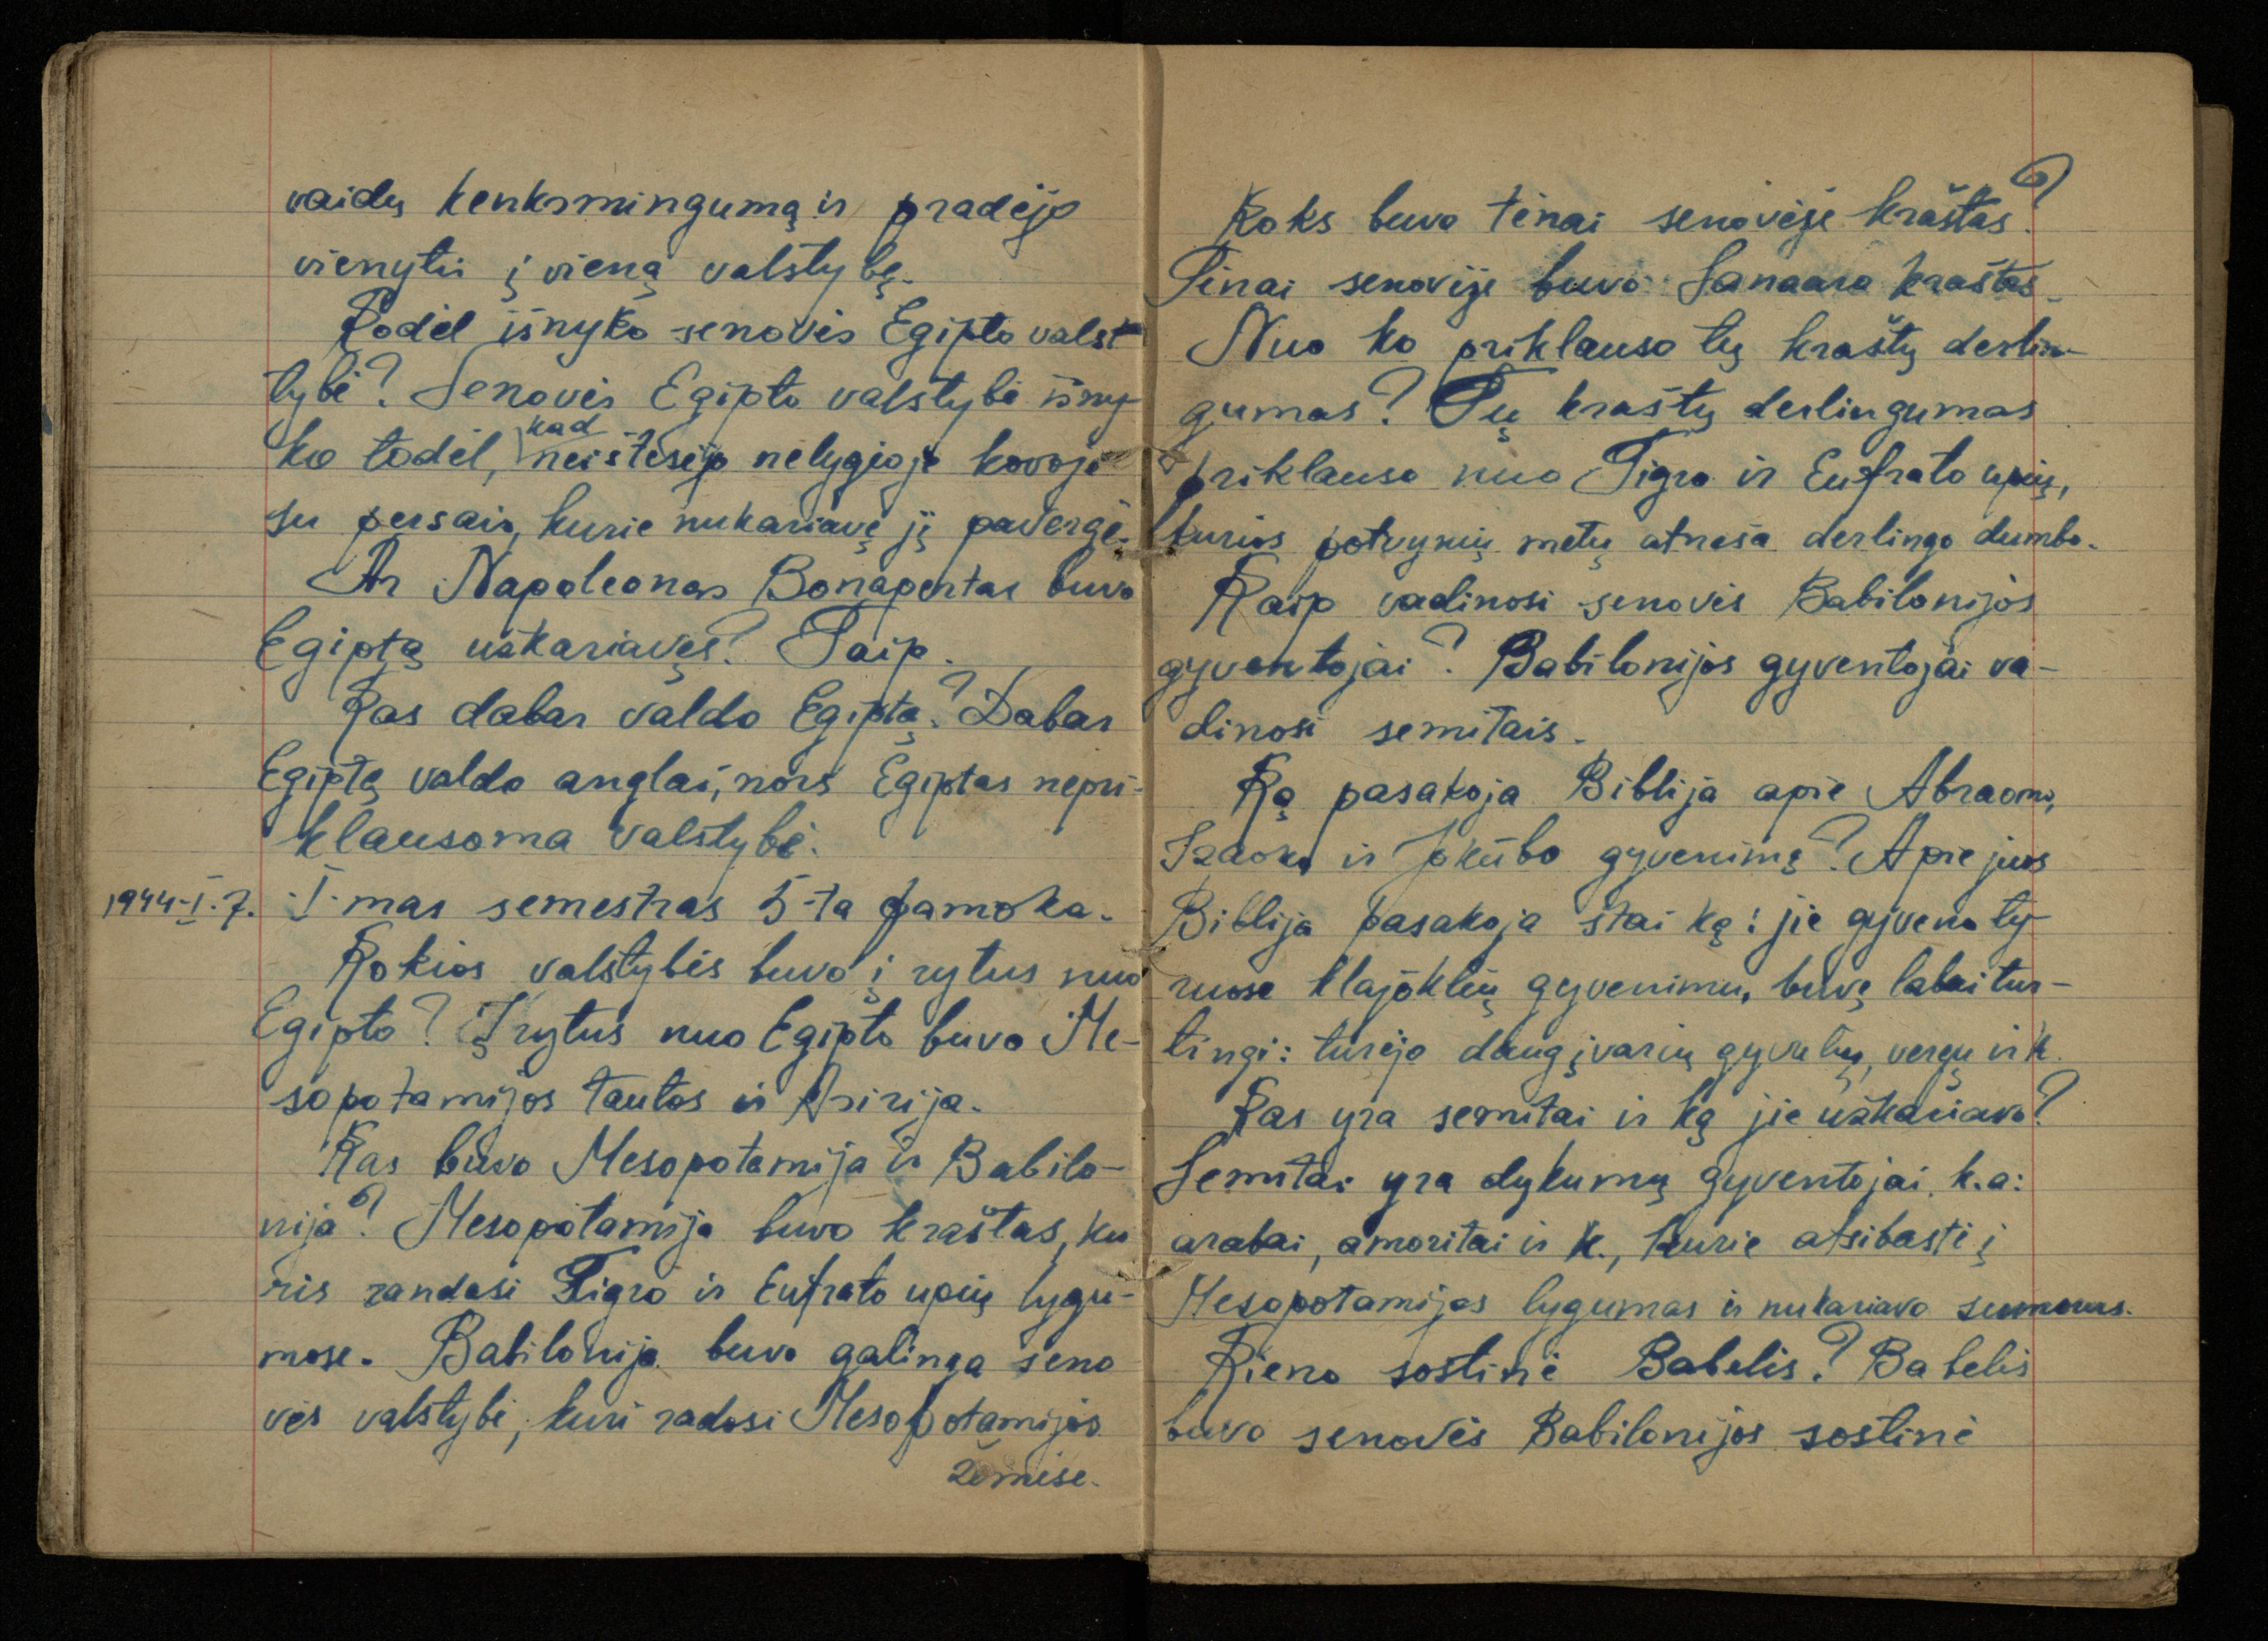 vaidų kenksmingumą ir pradėjo
vienytis į vieną valstybę.
Kodėl išnyko senovės Egipto valst
tybė? Senovės Egipto valstybė išny-
kad
ko todėl, neištesėjo nelygioje kovoje
su persais, kurie nukariavę jį pavergė.
Ar Napoleonas Bonapartas buvo
Egiptą užkariavęs? Taip.
Kas dabar valdo Egiptą? Dabar
Egiptą valdo anglai, nors Egiptas nepri-
klausoma valstybė.
1944-I-7. I-mas semestras 5-ta pamoka.
Kokios valstybės buvo į rytus nuo
Egipto? Į rytus nuo Egipto buvo Me-
sopotamijos tautos ir Asirija.
Kas buvo Mesopotamija ir Babilo-
nija? Mesopotamija buvo kraštas, ku
ris randasi Tigro ir Eufrato upių lygu-
mose. Babilonija buvo galinga seno
vės valstybė, kuri radosi Mesopotamijos
žemėse.
Koks buvo tenai senovėje kraštas?
Tenai senovėje buvo Sanaara kraštas.
Nuo ko priklauso tų kraštų derlin-
gumas? Tų kraštų derlingumas
priklauso nuo Tigro ir Eufrato upių,
kurios potvynių metų atneša derlingo dumblo.
Kaip vadinosi senovės Babilonijos
gyventojai? Babilonijos gyventojai va-
dinosi semitais.
Ką pasakoja Biblija apie Abraomo,
Izaoko ir Jokūbo gyvenimą? Apie juos
Biblija pasakoja štai ką: jie gyveno ty-
ruose klajoklių gyvenimu, buvę labai tur-
tingi: turėjo daug įvairių gyvulių, vergų ir k.
Kas yra semitai ir ką jie užkariavo?
Semitai yra dykumų gyventojai k.a:
arabai, amoritai ir k., kurie atsibastė į
Mesopotamijos lygumas ir nukariavo sumerus.
Kieno sostinė Babelis? Babelis
buvo senovės Babilonijos sostinė